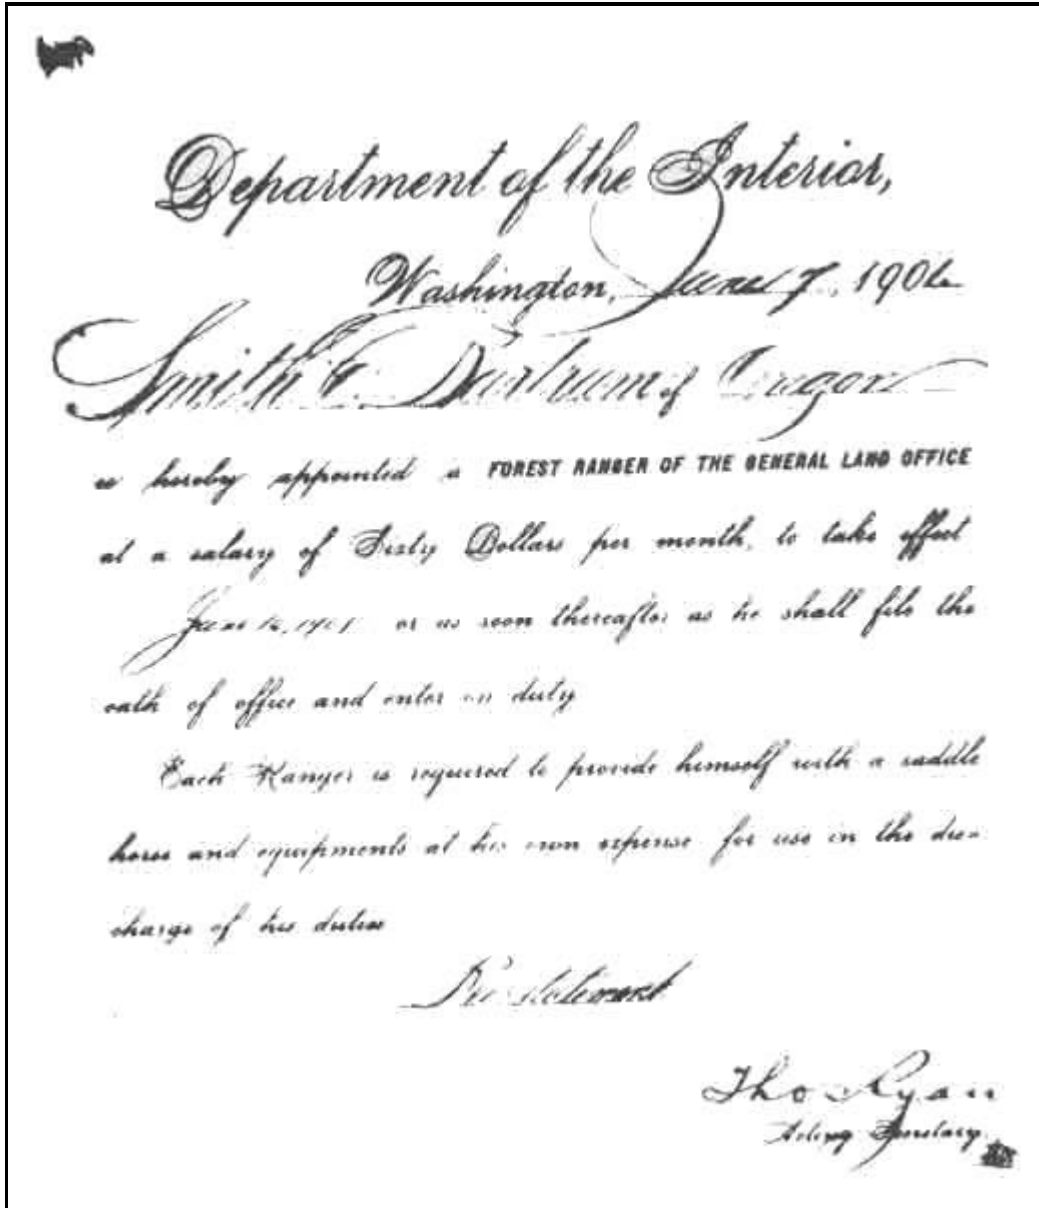 Department of the Interior,
Washington, June 7, 1904
Smith C. Bartrum of Oregon
is hereby appointed a FOREST RANGER OF THE GENERAL LAND OFFICE
at a salary of Sixty Dollars per month, to take effect
June or as soon thereafter as he shall file the
oath of office and enter on duty
Each Ranger is required to provide himself with a saddle
horse and equipments at his own expense for use in the dis-
charge of his duties
Reinstatement
Tho Ryan
Acting Secretary.